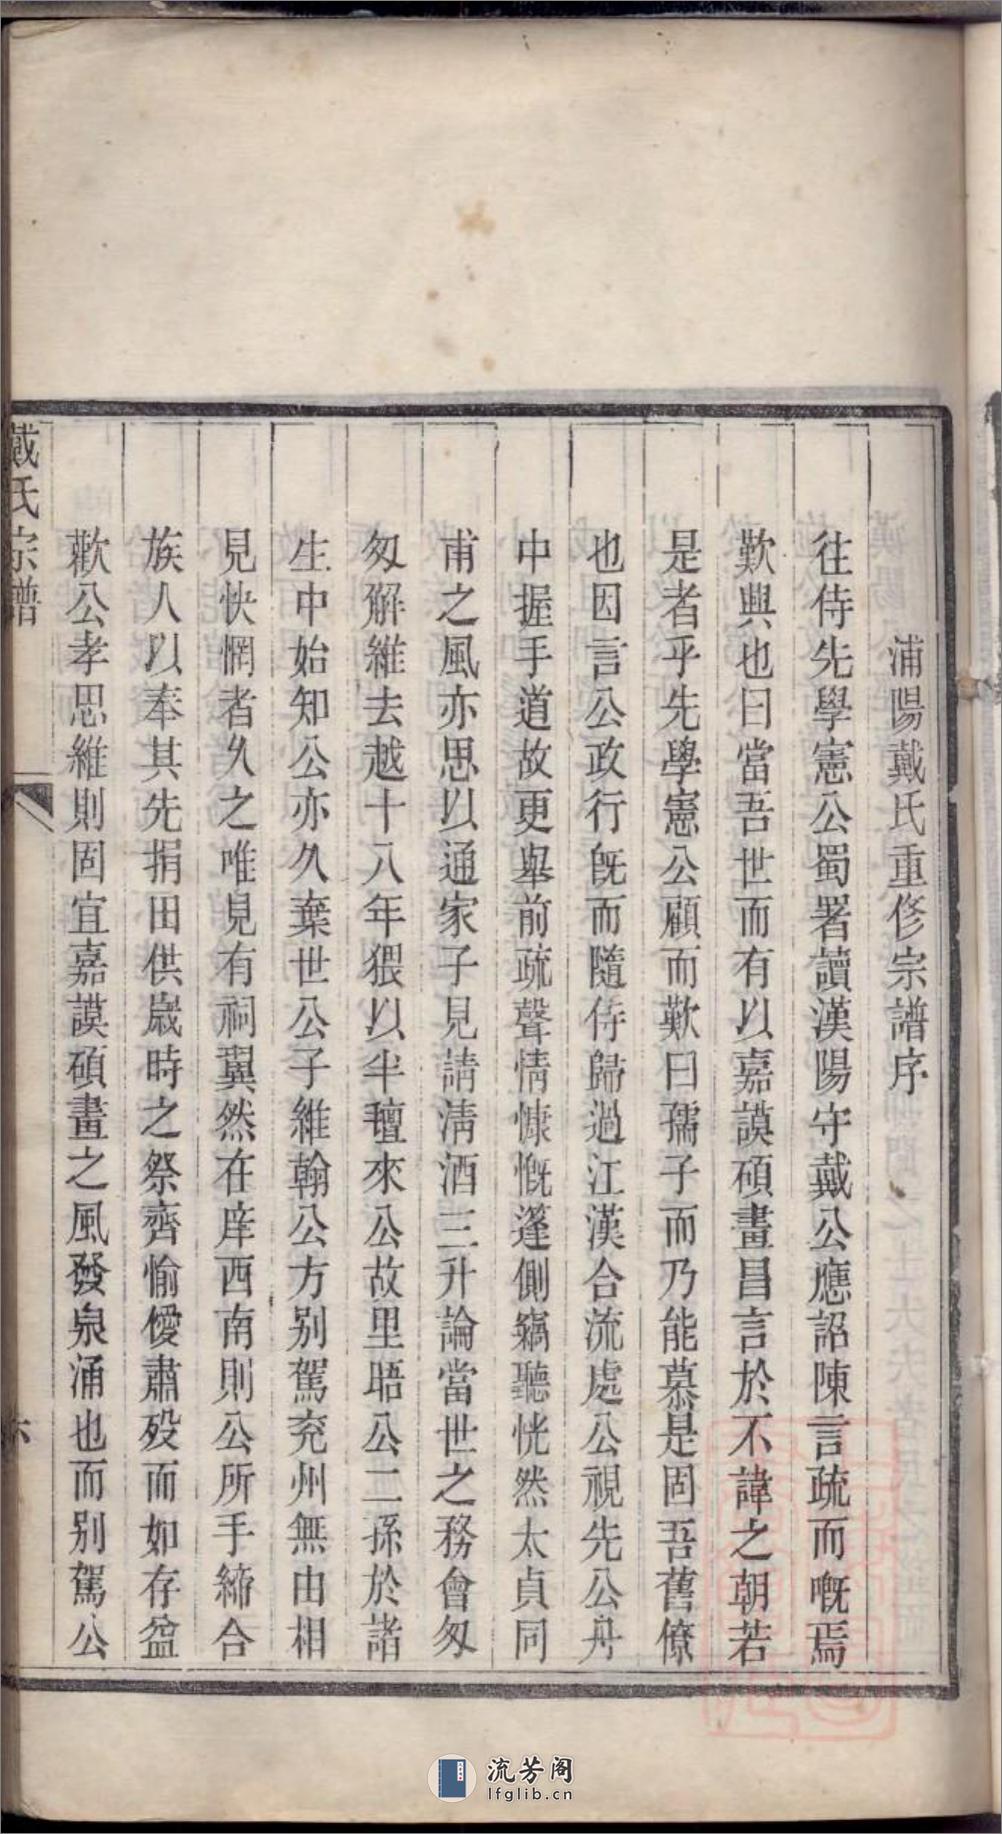 浦陽戴氏重修宗譜序
往侍先學憲公蜀署讀漢陽守戴公應詔陳言疏而嘅焉
歎興也曰當吾世而有以嘉謨碩畫昌言於不諱之朝若
是者乎先學憲公顧而歎曰孺子而乃能慕是固吾舊僚
也因言公政行旣而隨侍歸過江漢合流處公視先公舟
中握手道故更舉前疏聲情慷慨蓬側竊聽恍然太貞同
甫之風亦思以通家子見請淸酒三升論當世之務會匆
匆解維去越十八年猥以半氊來公故里晤公二孫於諸
生中始知公亦久棄世公子維翰公方别駕兖州無由相
見怏惘者久之唯見有祠翼然在庠西南則公所手締合
族人以奉其先捐田供嵗時之祭齊愉僾肅歿而如存盆
歎公孝思維則固宜嘉謨碩畫之風發泉涌也而别駕公
戴氏宗譜
六
流芳阁
lfglib.cn